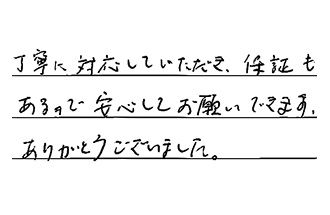 丁寧に対応していただき、保証も
あるので安心してお願いできます。
ありがとうございました。